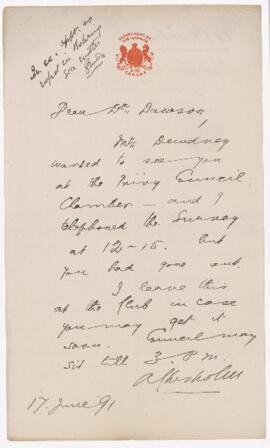 DEPARTMENT OF
THE INTERIOR
CANADA
Dear Dr. Dawson,
Mr. Dewdney
wanted to see you
at the Privy Council
Chamber - and I
telephoned the Survey
at 12-15. but
you had gone out.
I leave this
at the Club in case
you may get it
soon. Council may
sit till 3. P.m.
AChisholm
17 June 91